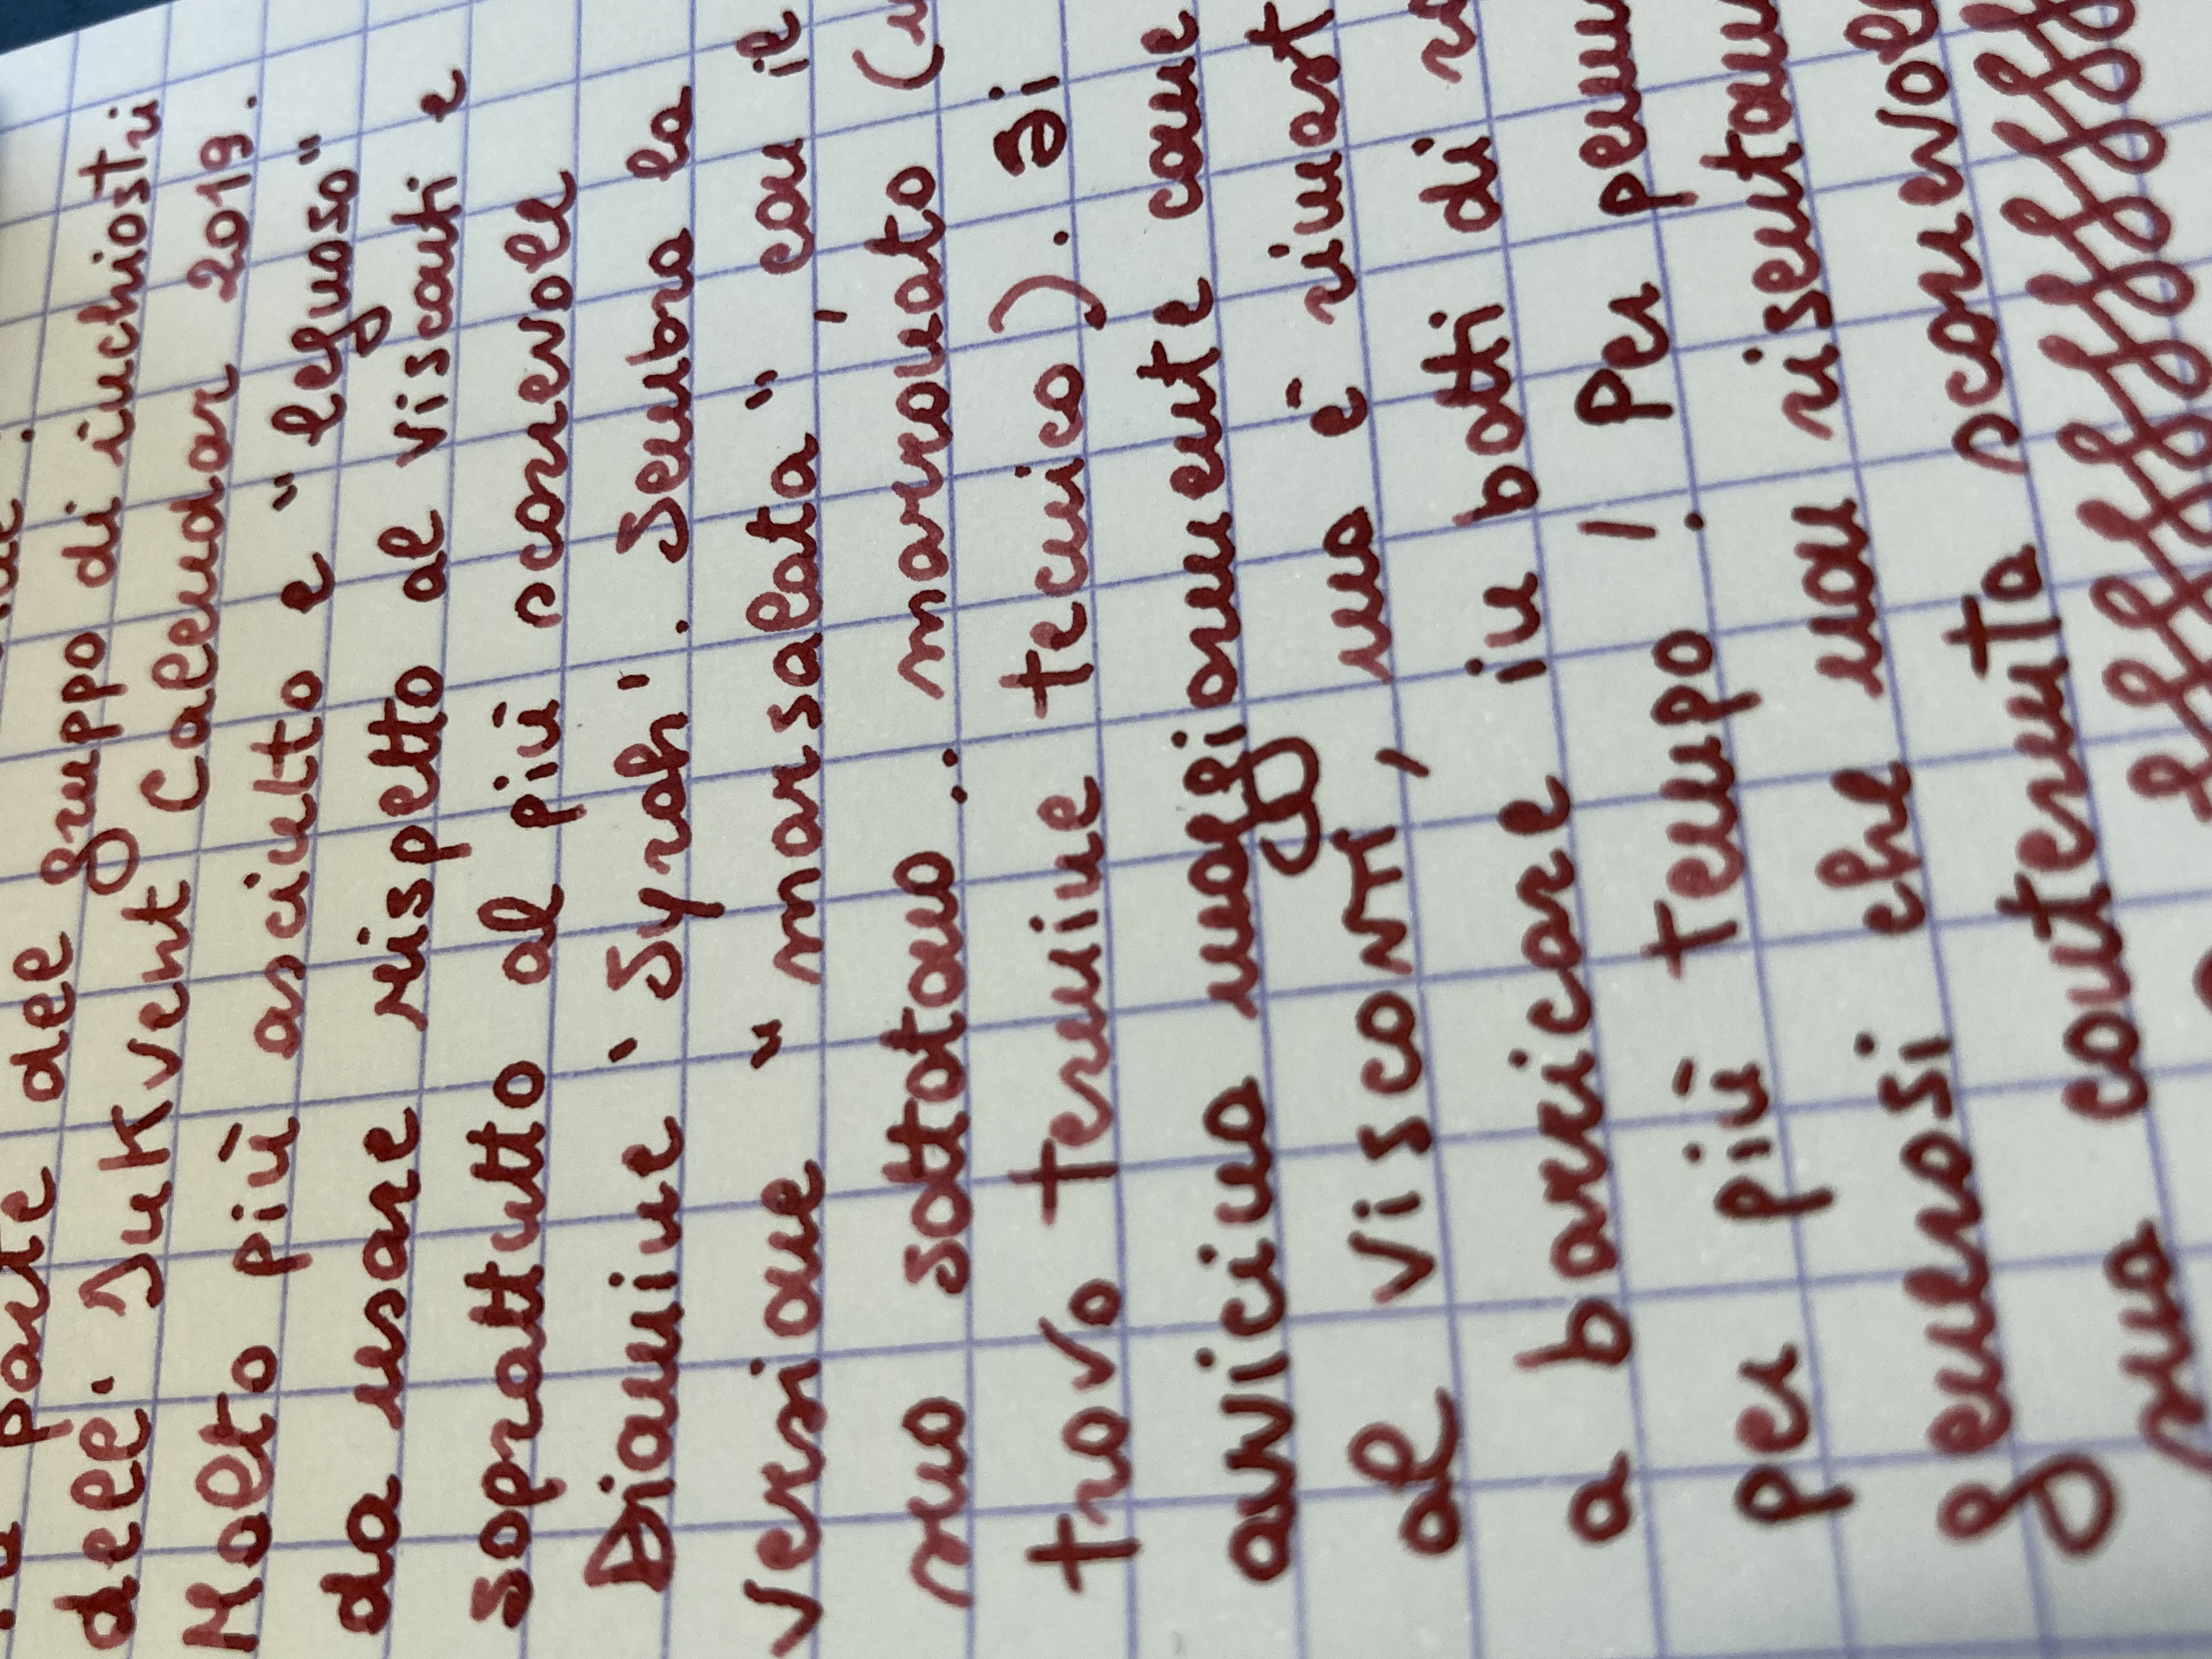 parte del gruppo di inchiostri
dell' InkVent Calendar 2019.
Molto più asciutto e "legnoso"
da usare rispetto al Visconti e
soprattutto al più scorrevole
Diamine 'Syrah'. Sembra la
versione "marsalata", con il
suo sottotono marronato (
trovo termine tecnico). Si
avvicina maggiormente come
al Visconti, ma è rimast
a barricare in botti di
per più tempo! Per
generosi che non risentano
contenuto scorrevole